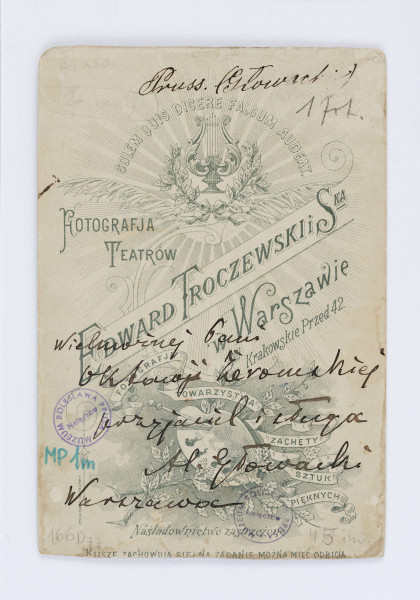 Pruss. (Głowacki)
1 fot.
SOLEM QUIS DICERE FALSUM AUDEAT.
FOTOGRAFJA
TEATRÓW
EDWARD TROCZEWSKI i SKA
w Warszawie
Krakowskie Przed. 42.
Wielmożnej Pani
FOTOGRAFJA
Oktawji Żeromskiej
TOWARZYSTWA
przyjaciel i sługa
ZACHĘTY
SZTUK
PIĘKNYCH
Al. Głowacki
Warszawa
MUZEUM BOLESŁAWA PRUSA
Nałęczów
MP 1m
Naśladownictwo zastrzeżone
166D
KLISZE ZACHOWUJĄ SIĘ I NA ŻĄDANIE MOŻNA MIEĆ ODBICIA